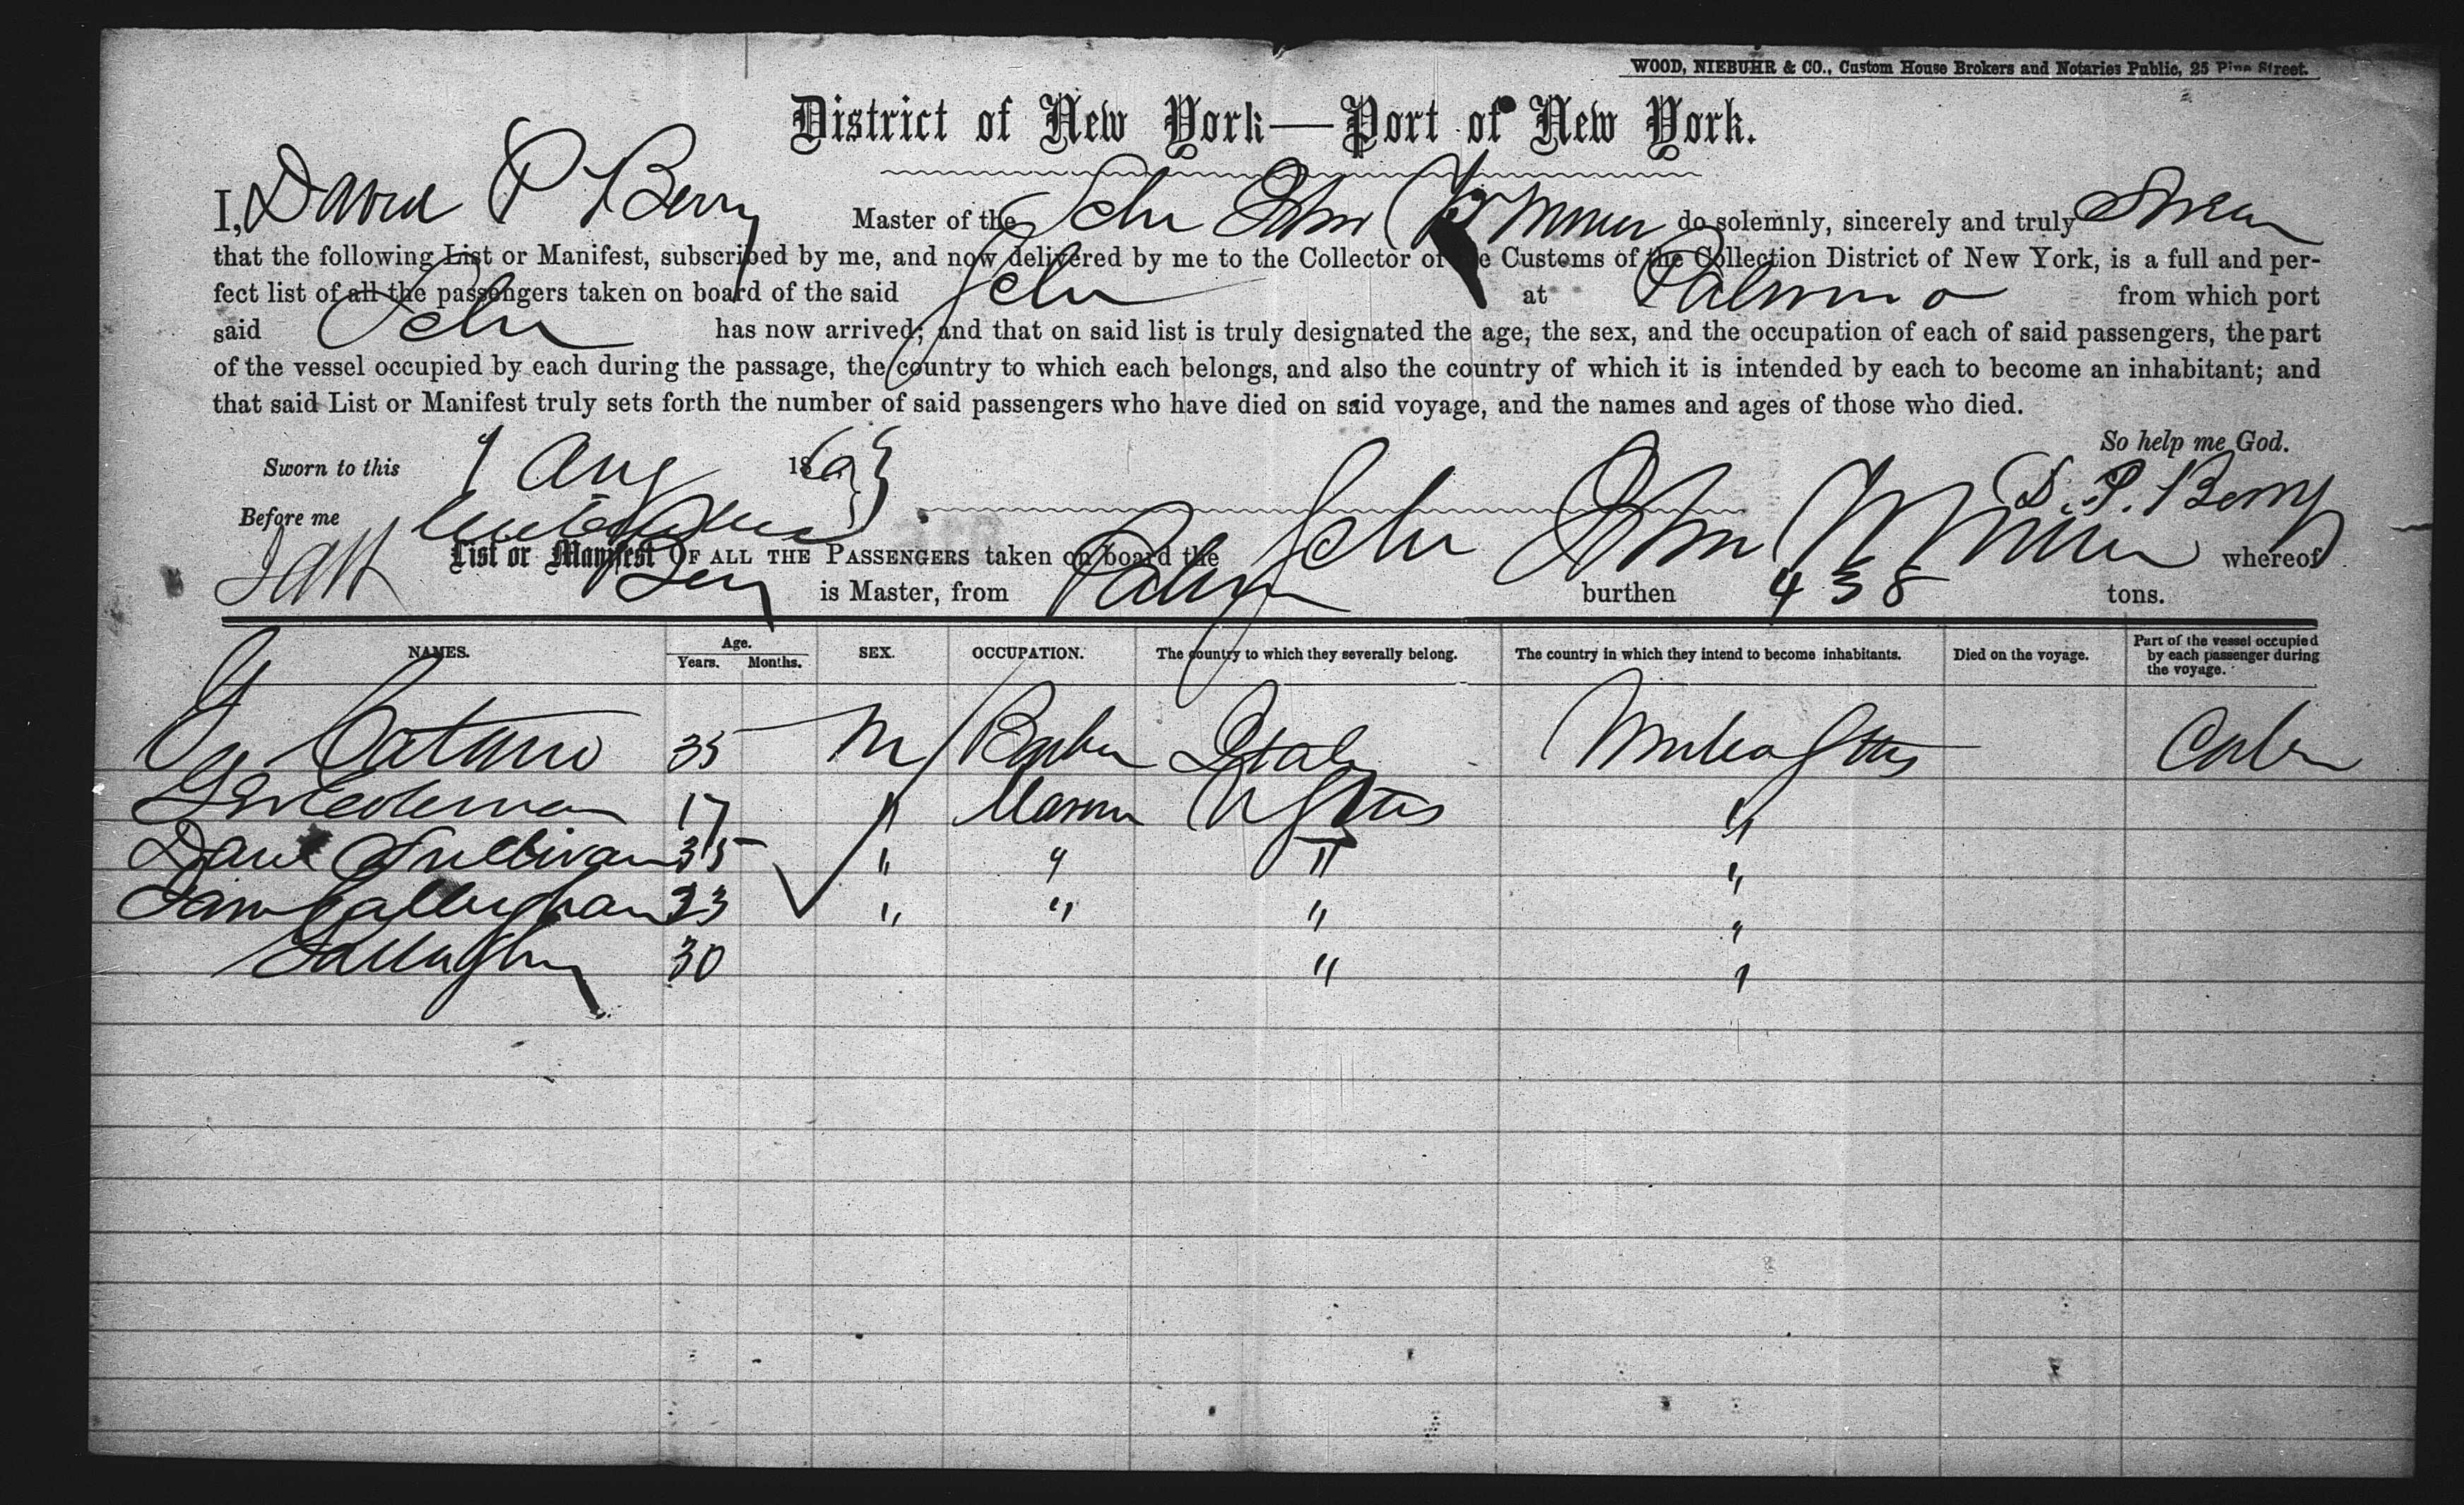 WOOD, NIEBUHR & CO., Custom House Brokers and Notaries Public, 25 Pine Street.
District of New York—Port of New York.
I, David P Berry Master of the Schr John do solemnly, sincerely and truly Swear
that the following List or Manifest, subscribed by me, and now delivered by me to the Collector of the Customs of the Collection District of New York, is a full and per-
fect list of all the passengers taken on board of the said Schr at Palermo from which port
said Schr has now arrived; and that on said list is truly designated the age, the sex, and the occupation of each of said passengers, the part
of the vessel occupied by each during the passage, the country to which each belongs, and also the country of which it is intended by each to become an inhabitant; and
that said List or Manifest truly sets forth the number of said passengers who have died on said voyage, and the names and ages of those who died.
So help me God.
Sworn to this 7 Aug 1869
D. P. Berry
Before me
List or Manifest OF ALL THE PASSENGERS taken on board the Schr John whereof
Berry is Master, from burthen 438 tons.
NAMES. Age. Years. Months. SEX. OCCUPATION. The country to which they severally belong. The country in which they intend to become inhabitants. Died on the voyage. Part of the vessel occupied by each passenger during the voyage.
35 M Barber Italy United States Cabin
17 " U States "
Danl Sullivan 35 " " " "
Callaghan 23 " " " "
Gallagher 30 " "